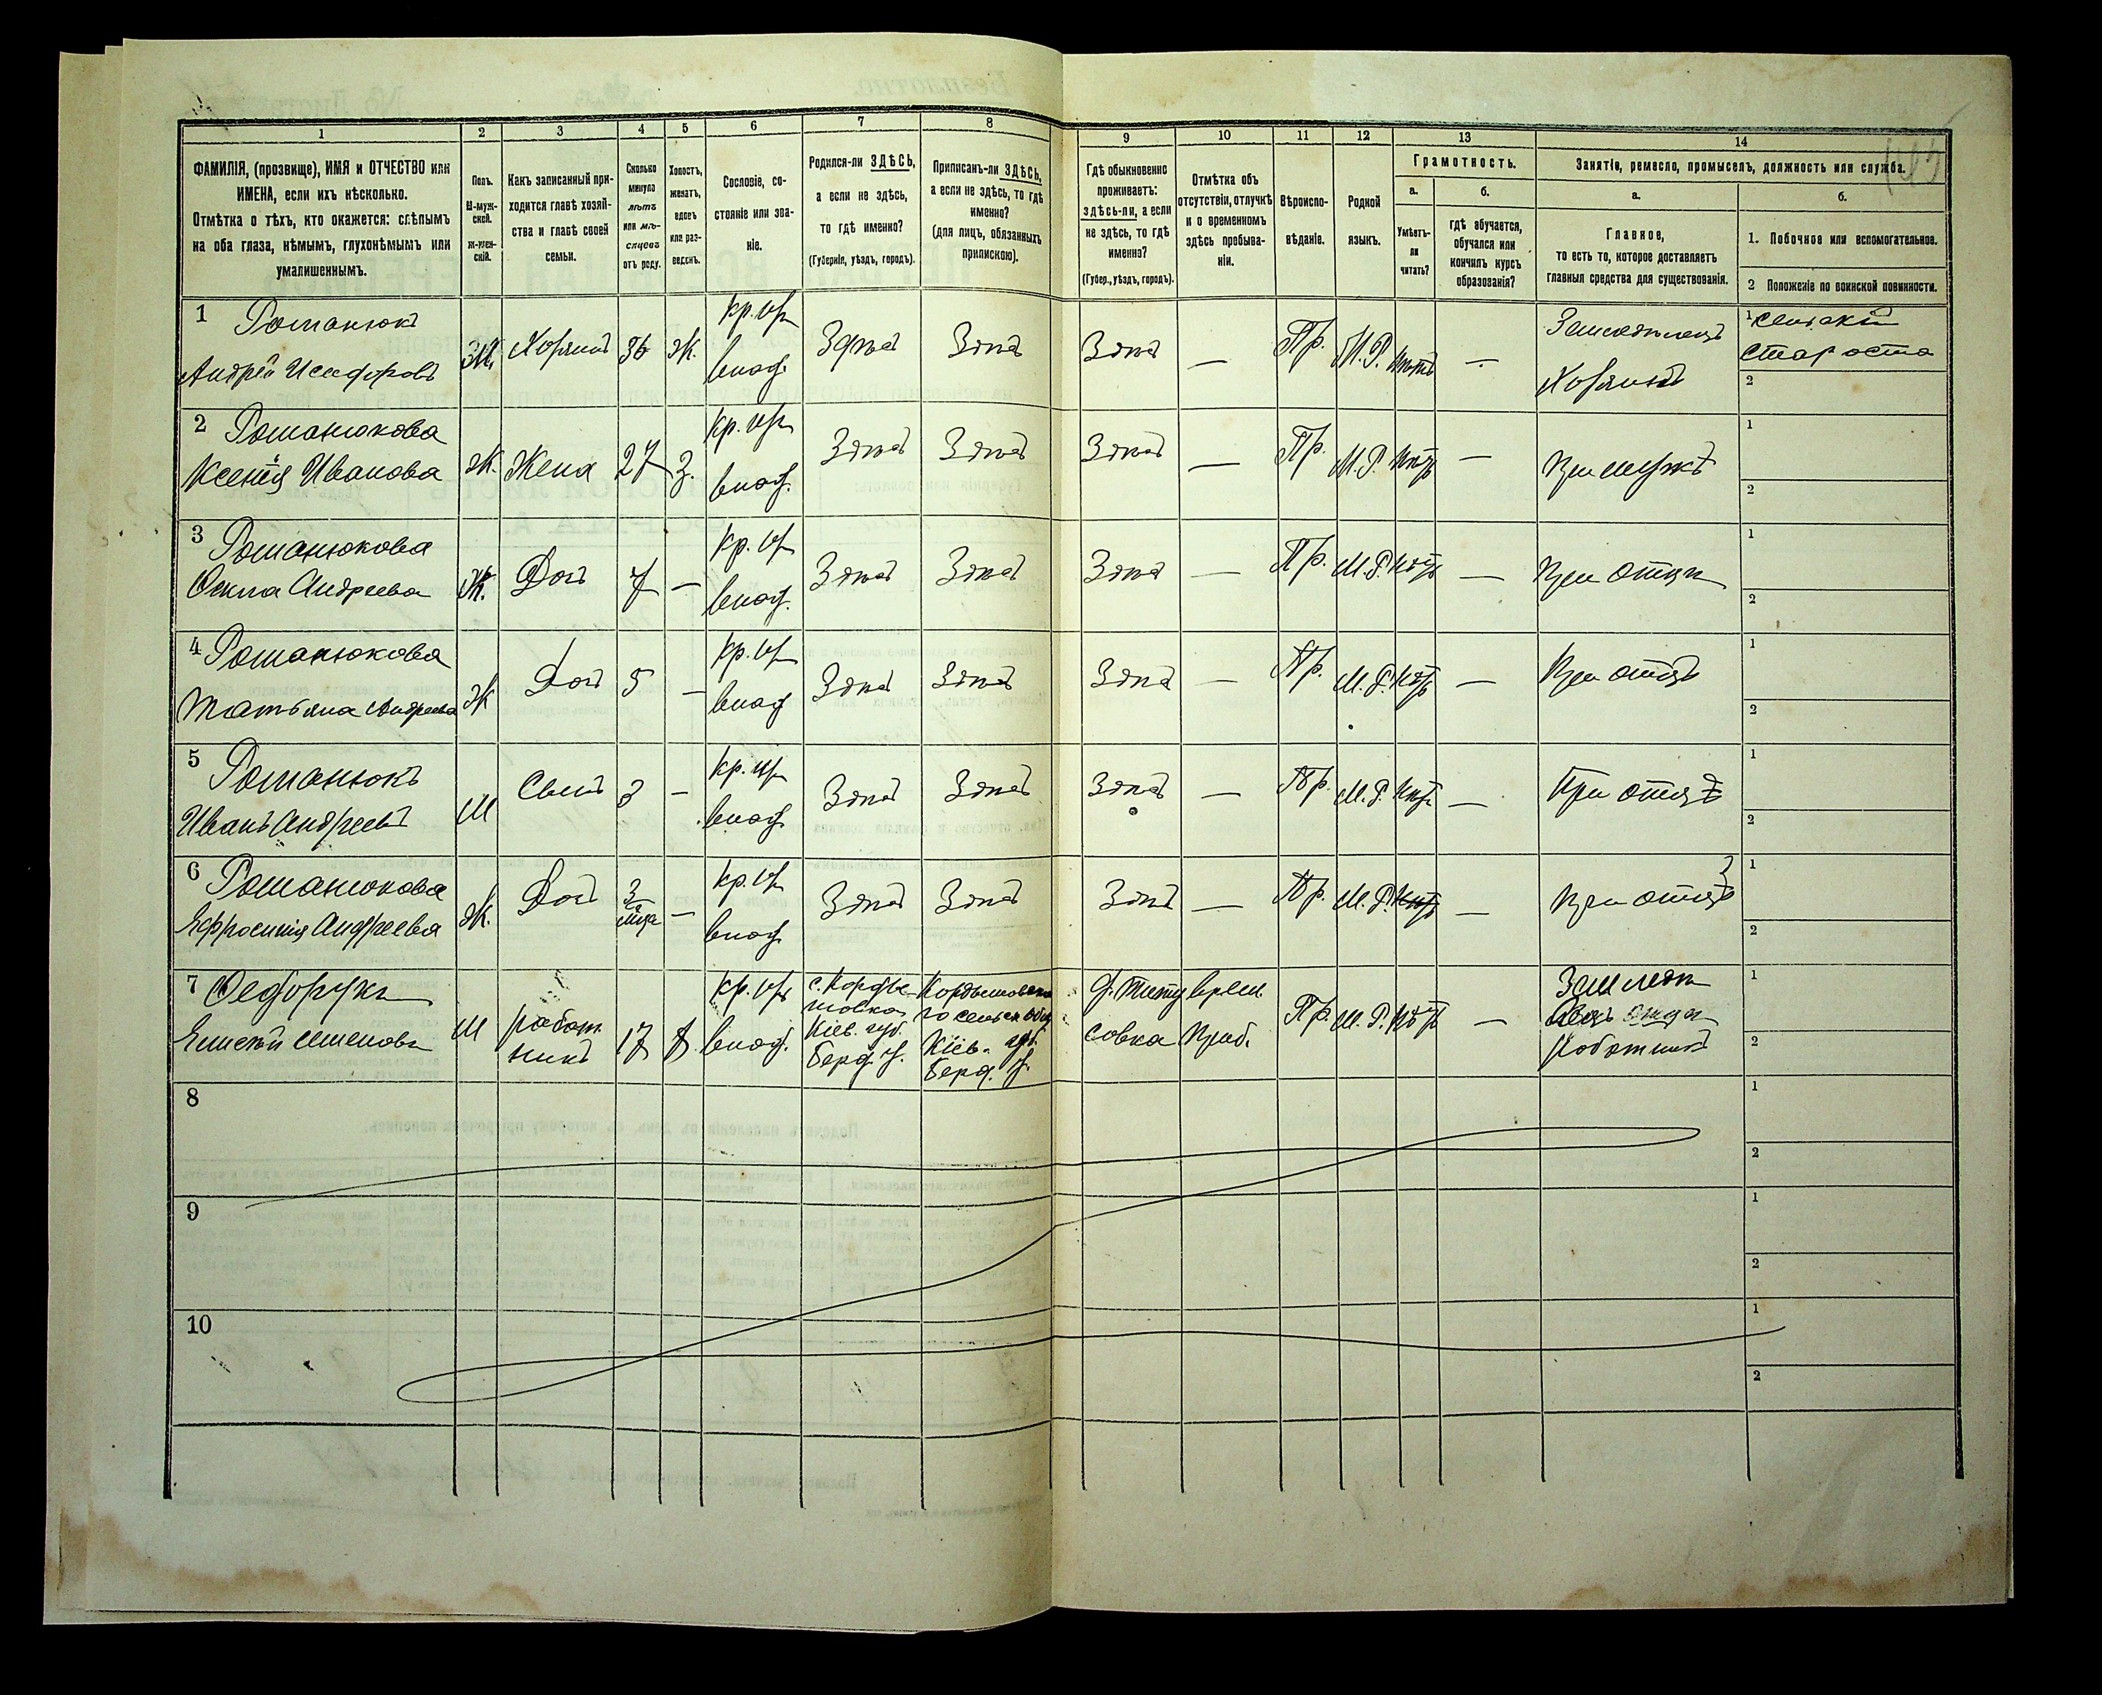 1 2 3 4 5 6 7 8 9 10 11 12 13 14
ФАМИЛІЯ, (прозвище), ИМЯ и ОТЧЕСТВО или
ИМЕНА, если ихъ нѣсколько.
Отмѣтка о тѣхъ, кто окажется: слѣпымъ
на оба глаза, нѣмымъ, глухонѣмымъ или
умалишеннымъ.
Полъ.
М-муж-
ской.
Ж-жен-
скій.
Какъ записанный при-
ходится главѣ хозяй-
ства и главѣ своей
семьи.
Сколько
минуло
лѣтъ
или мѣ-
сяцевъ
отъ роду.
Холостъ,
женатъ,
вдовъ
или раз-
веденъ.
Сословіе, со-
стояніе или зва-
ніе.
Родился-ли ЗДѢСЬ,
а если не здѣсь,
то гдѣ именно?
(Губернія, уѣздъ, городъ).
Приписанъ-ли ЗДѢСЬ,
а если не здѣсь, то гдѣ
именно?
(для лицъ, обязанныхъ
припискою).
Гдѣ обыкновенно
проживаетъ:
здѣсь-ли, а если
не здѣсь, то гдѣ
именно?
(Губер., уѣздъ, городъ).
Отмѣтка объ
отсутствіи, отлучкѣ
и о временномъ
здѣсь пребыва-
ніи.
Вѣроиспо-
вѣданіе.
Родной
языкъ.
Грамотность.
а.
Умѣетъ-
ли
читать?
б.
гдѣ обучается,
обучался или
кончилъ курсъ
образованія?
Занятіе, ремесло, промыселъ, должность или служба.
а.
Главное,
то есть то, которое доставляетъ
главныя средства для существованія.
б.
1. Побочное или вспомогательное.
2 Положеніе по воинской повинности.
1 Романюкъ
Андрей Исидоровъ
М. Хозяинъ 36 Ж. кр. изъ
влад. Здѣсь Здѣсь Здѣсь — Пр. М.Р. нѣтъ — Земледѣлецъ
Хозяинъ
1 сельскій
староста
2
2 Романюкова
Ксенія Иванова
Ж. Жена 27 З. кр. изъ
влад. Здѣсь Здѣсь Здѣсь — Пр. М.Р. нѣтъ — При мужѣ
1
2
3 Романюкова
Фекла Андреева
Ж. Дочь 7 — кр. изъ
влад. Здѣсь Здѣсь Здѣсь — Пр. М.Р. нѣтъ — При отцѣ
1
2
4 Романюкова
Татьяна Андреева
Ж Дочь 5 — кр. изъ
влад Здѣсь Здѣсь Здѣсь — Пр. М.Р. нѣтъ — При отцѣ
1
2
5 Романюкъ
Иванъ Андреевъ
М Сынъ 3 — кр. изъ
влад. Здѣсь Здѣсь Здѣсь — Пр. М.Р. нѣтъ — При отцѣ
1
2
6 Романюкова
Ефросинія Андреева
Ж. Дочь 3
мѣся — кр. изъ
влад Здѣсь Здѣсь Здѣсь — Пр. М.Р. нѣтъ — При отцѣ
1
2
7 Федорукъ
Семеновъ
М работ
никъ 17 Х. кр. изъ
влад.
Кіев. губ.
Берд. у.
Кіев. губ.
Берд. у.
врем.
преб.
Пр. М.Р. нѣтъ —
Работникъ
1
2
8
1
2
9
1
2
10
1
2